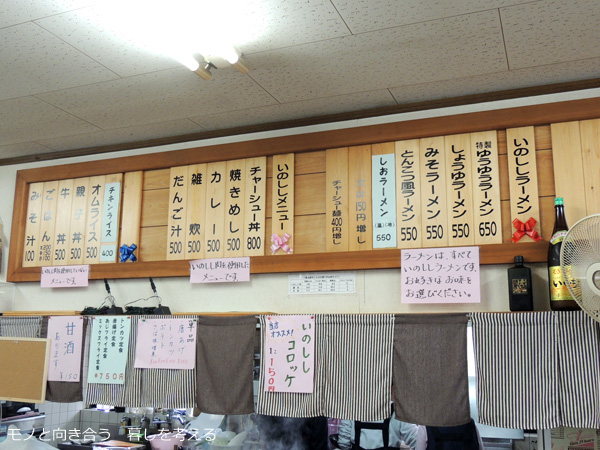 いのししラーメン
特製ゆうゆうラーメン 650
しょうゆラーメン 550
みそラーメン 550
とんこつ風ラーメン 550
しおラーメン 550
チャーシュー麺400円増し
いのししメニュー
チャーシュー丼 800
焼きめし 500
カレー 500
雑炊 500
だんご汁 500
チキンライス 400
オムライス 500
親子丼 500
牛丼 500
ごはん
みそ汁 100
ラーメンは、すべて
いのししラーメンです。
お好きなお味を
お選びください。
いのしし肉を使用した
メニューです。
メニューです。
甘酒
あります
150円
トンカツ定食
唐揚げ定食
あじフライ定食
エッグスフライ定食
¥750円
単品
唐あげ
トンカツ
いのしし
コロッケ
当店
オススメ!
1コ150円
モノと向き合う 暮しを考える